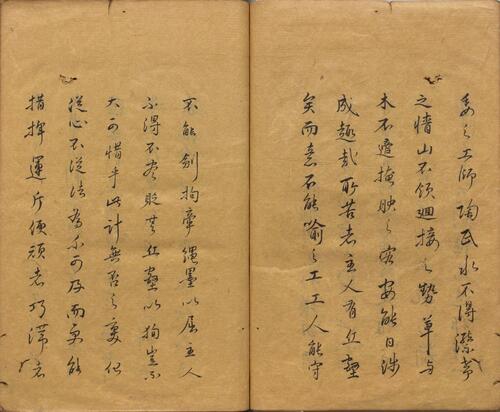 委之工師陶氏水不得瀠帶
之情山不領迴接之勢草與
木不適掩映之容安能日涉
成趣哉所苦者主人有丘壑
矣而意不能喻之工工人能守
不能創拘牽繩墨以屈主人
不得不盡貶其丘壑以徇豈不
大可惜乎此計無否之變化
從心不從法為不可及而更能
指揮運斤使頑者巧滯者